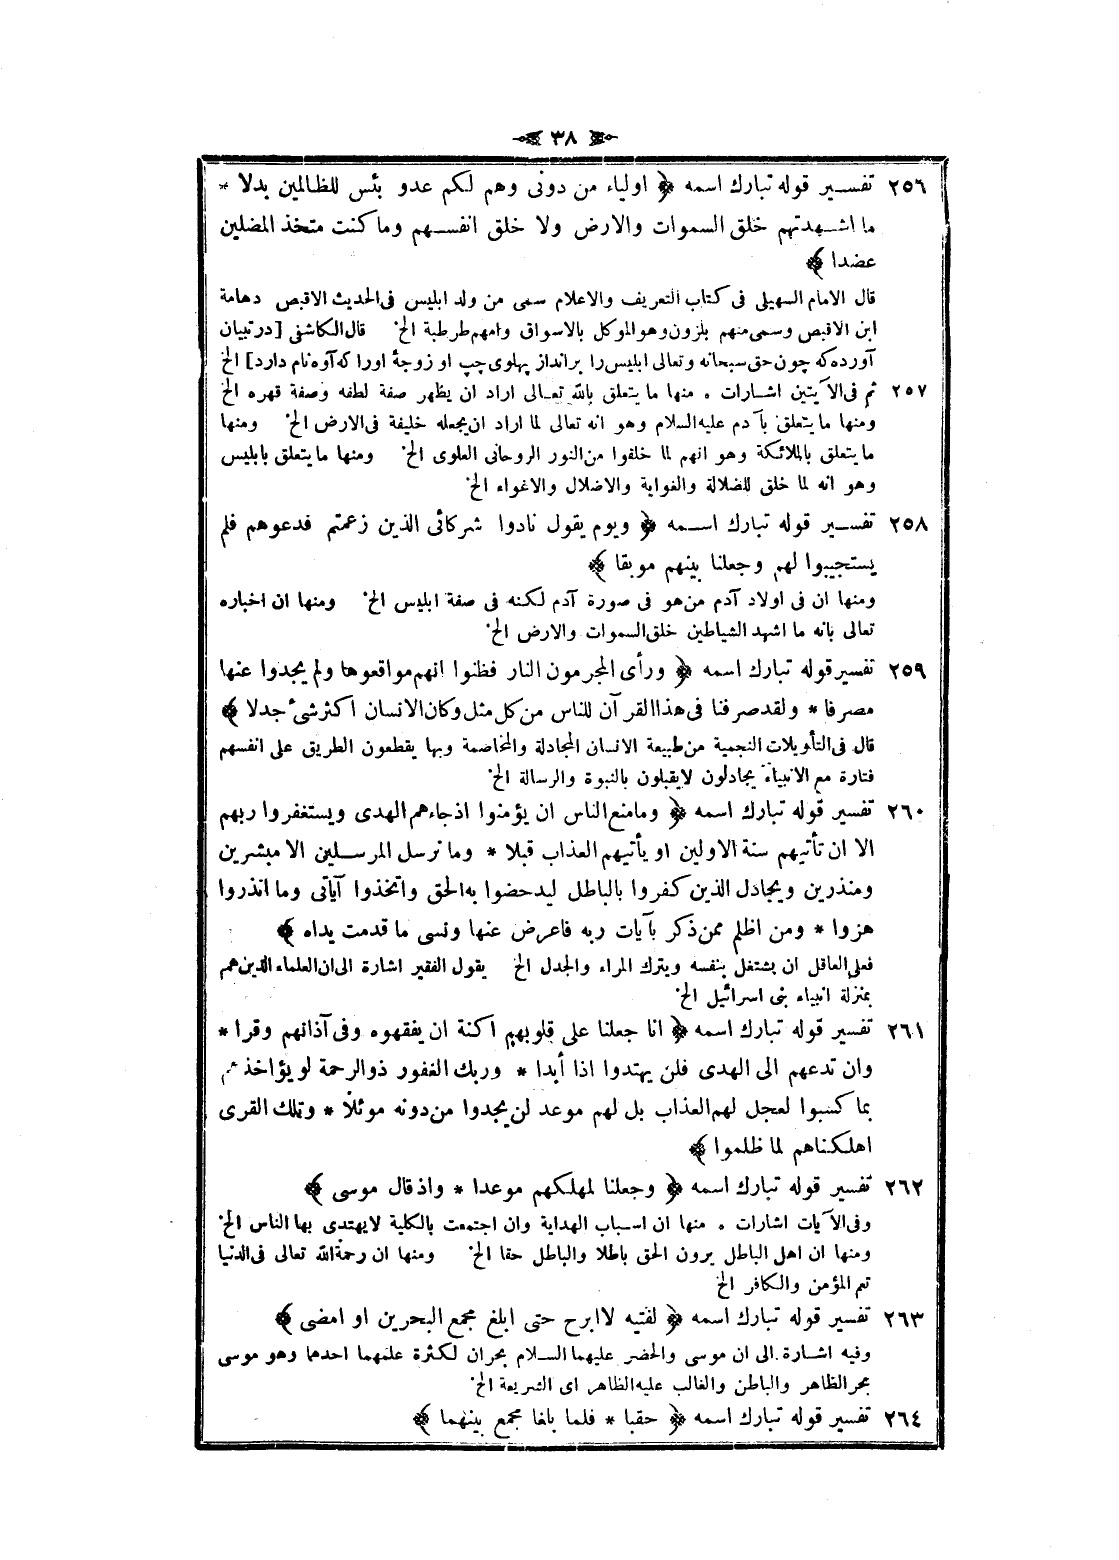 ٣٨
٢٥٦ تفسير قوله تبارك اسمه ﴿ اولياء من دونى وهم لكم عدو بئس للظالمين بدلا *
ما اشهدتهم خلق السموات والارض ولا خلق انفسهم وماكنت متخذ المضلين
عضدا ﴾
قال الامام السهيلى فى كتاب التعريف والاعلام سمى من ولد ابليس فى الحديث الاقبص دهامة
ابن الاقبص وسمى منهم بلزون وهو الموكل بالاسواق وامهم طرطبة الخ قال الكاشفى [در تبيان
آورده كه چون حق سبحانه وتعالى ابليس را برانداز پهلوى چپ او زوجۀ اورا كه آوه نام دارد] الخ
٢٥٧ ثم فى الآيتين اشارات . منها ما يتعلق بالله تعالى اراد ان يظهر صفة لطفه وصفة قهره الخ
ومنها ما يتعلق بآدم عليه السلام وهو انه تعالى لما اراد ان يجعله خليفة فى الارض الخ ومنها
ما يتعلق بالملائكة وهو انهم لما خلقوا من النور الروحانى العلوى الخ ومنها ما يتعلق بابليس
وهو انه لما خلق للضلالة والغواية والاضلال والاغواء الخ
٢٥٨ تفسير قوله تبارك اسمه ﴿ ويوم يقول نادوا شركائى الذين زعمتم فدعوهم فلم
يستجيبوا لهم وجعلنا بينهم موبقا ﴾
ومنها ان فى اولاد آدم من هو فى صورة آدم لكنه فى صفة ابليس الخ ومنها ان اخباره
تعالى بانه ما اشهد الشياطين خلق السموات والارض الخ
٢٥٩ تفسير قوله تبارك اسمه ﴿ ورأى المجرمون النار فظنوا انهم مواقعوها ولم يجدوا عنها
مصرفا * ولقد صرفنا فى هذا القرآن للناس من كل مثل وكان الانسان اكثر شىء جدلا ﴾
قال فى التأويلات النجمية من طبيعة الانسان المجادلة والمخاصمة وبها يقطعون الطريق على انفسهم
فتارة مع الانبياء يجادلون لايقبلون بالنبوة والرسالة الخ
٢٦٠ تفسير قوله تبارك اسمه ﴿ ومامنع الناس ان يؤمنوا اذ جاءهم الهدى ويستغفروا ربهم
الا ان تأتيهم سنة الاولين او يأتيهم العذاب قبلا * وما نرسل المرسلين الا مبشرين
ومنذرين ويجادل الذين كفروا بالباطل ليدحضوا به الحق واتخذوا آياتى وما انذروا
هزوا * ومن اظلم ممن ذكر بآيات ربه فاعرض عنها ونسى ما قدمت يداه ﴾
فعلى العاقل ان يشتغل بنفسه ويترك المراء والجدل الخ يقول الفقير اشارة الى ان العلماء الذين هم
بمنزلة انبياء بنى اسرائيل الخ
٢٦١ تفسير قوله تبارك اسمه ﴿ انا جعلنا على قلوبهم اكنة ان يفقهوه وفى آذانهم وقرا *
وان تدعهم الى الهدى فلن يهتدوا اذا أبدا * وربك الغفور ذو الرحمة لو يؤاخذهم
بما كسبوا لعجل لهم العذاب بل لهم موعد لن يجدوا من دونه موئلا * وتلك القرى
اهلكناهم لما ظلموا ﴾
٢٦٢ تفسير قوله تبارك اسمه ﴿ وجعلنا لمهلكهم موعدا * واذ قال موسى ﴾
وفى الآيات اشارات . منها ان اسباب الهداية وان اجتمعت بالكلية لايهتدى بها الناس الخ
ومنها ان اهل الباطل يرون الحق باطلا والباطل حقا الخ ومنها ان رحمة الله تعالى فى الدنيا
تعم المؤمن والكافر الخ
٢٦٣ تفسير قوله تبارك اسمه ﴿ لفتيه لا ابرح حتى ابلغ مجمع البحرين او امضى ﴾
وفيه اشارة الى ان موسى والخضر عليهما السلام بحران لكثرة علمهما احدهما وهو موسى
بحر الظاهر والباطن والغالب عليه الظاهر اى الشريعة الخ
٢٦٤ تفسير قوله تبارك اسمه ﴿ حقبا * فلما بلغا مجمع بينهما ﴾